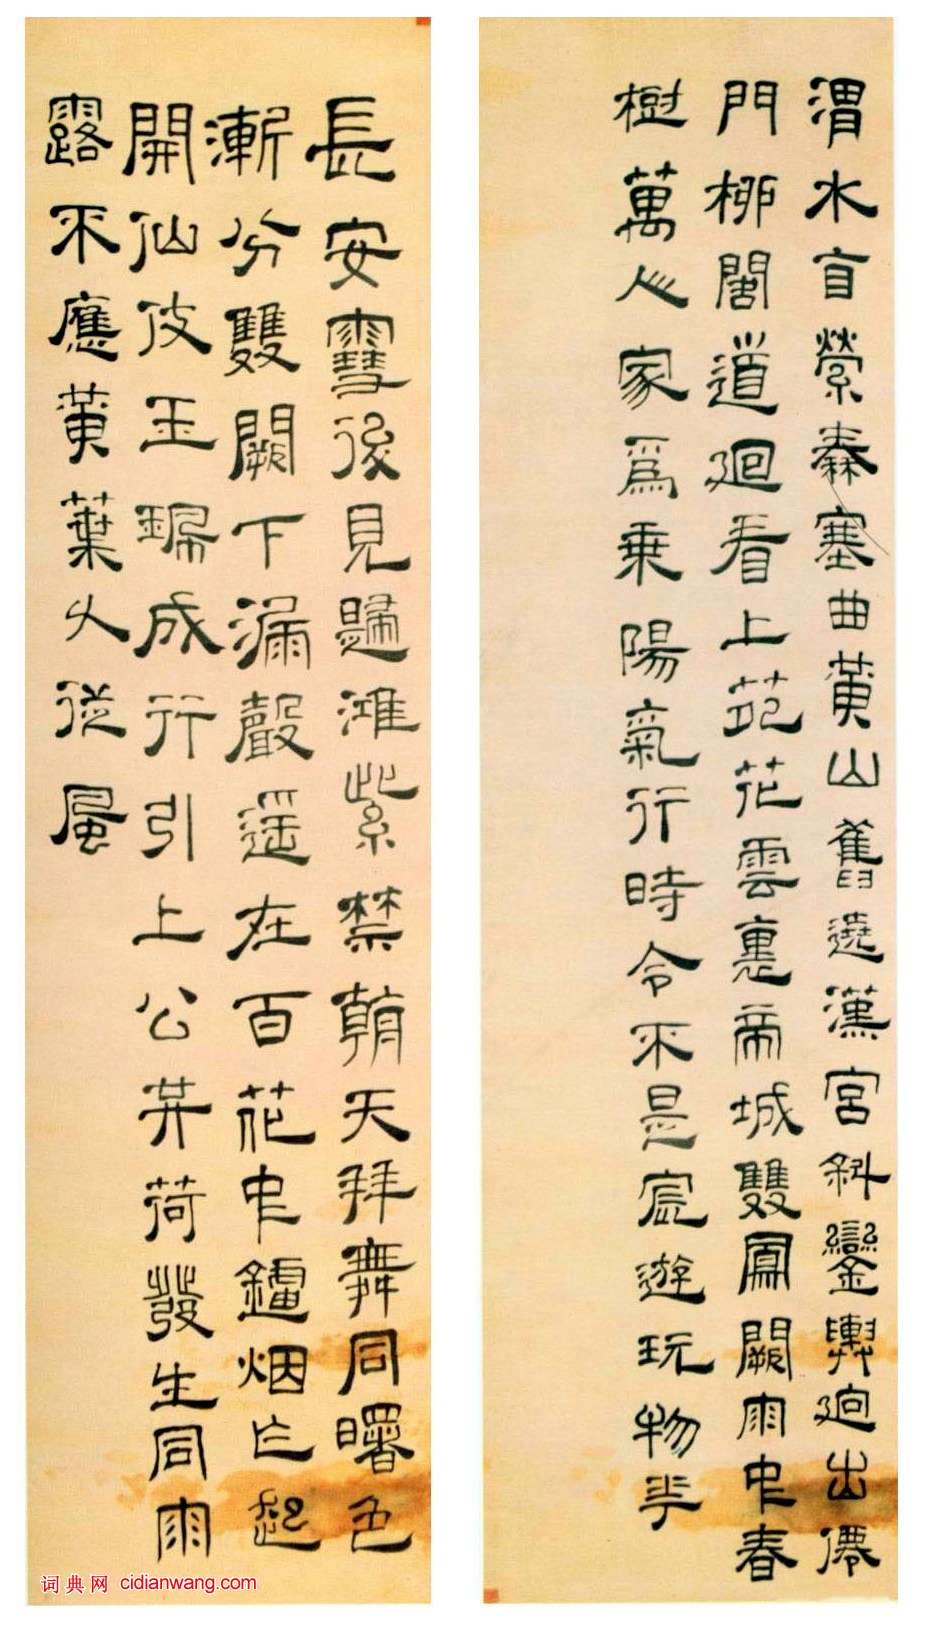 渭水自縈秦塞曲黃山舊遶漢宮斜鑾輿迥出僊
門栁閣道迴看上苑花雲裏帝城雙鳳闕雨中春
樹萬人家爲乗陽氣行時令不是宸遊玩物華
長安雪後見歸鴻紫禁朝天拜舞同曙色
漸分雙闕下漏聲遥在百花中鑪烟乍起
開仙仗玉珮成行引上公共荷發生同雨
露不應黃葉久從風
词典网 cidianwang.com